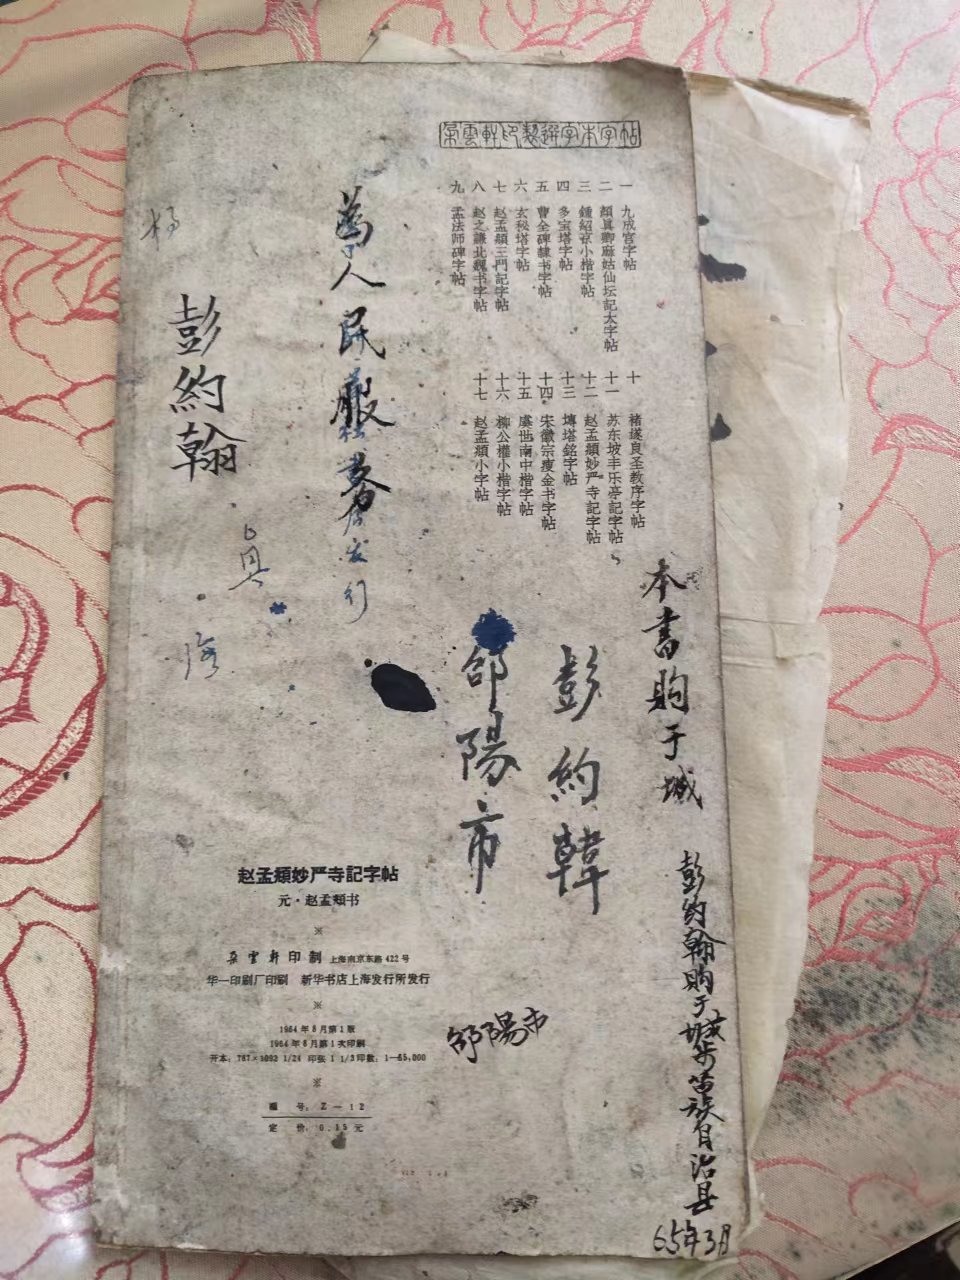 朵雲軒印製選字本字帖
一 九成宫字帖
二 顏真卿麻姑仙坛記大字帖
三 鍾紹京小楷字帖
四 多宝塔字帖
五 曹全碑隸书字帖
六 玄秘塔字帖
七 赵孟頫三門記字帖
八 赵之謙北魏书字帖
九 孟法师碑字帖
十 褚遂良圣教序字帖
十一 苏东坡丰乐亭記字帖
十二 赵孟頫妙严寺記字帖
十三 塼塔銘字帖
十四 宋徽宗瘦金书字帖
十五 虞世南中楷字帖
十六 柳公權小楷字帖
十七 赵孟頫小字帖
本書购于城
彭約翰购于城步苗族自治县
65年3月
彭約韓
邵陽市
邵陽市
為人民服務
发行
彭約翰
赵孟頫妙严寺記字帖
元·赵孟頫书
※
朵雲軒印制 上海南京东路422号
华一印刷厂印刷 新华书店上海发行所发行
※
1964年8月第1版
1964年8月第1次印刷
开本：787×1092 1/24 印张 1 1/3 印数：1—65,000
※
編 号：Z—12
定 价：0.15元